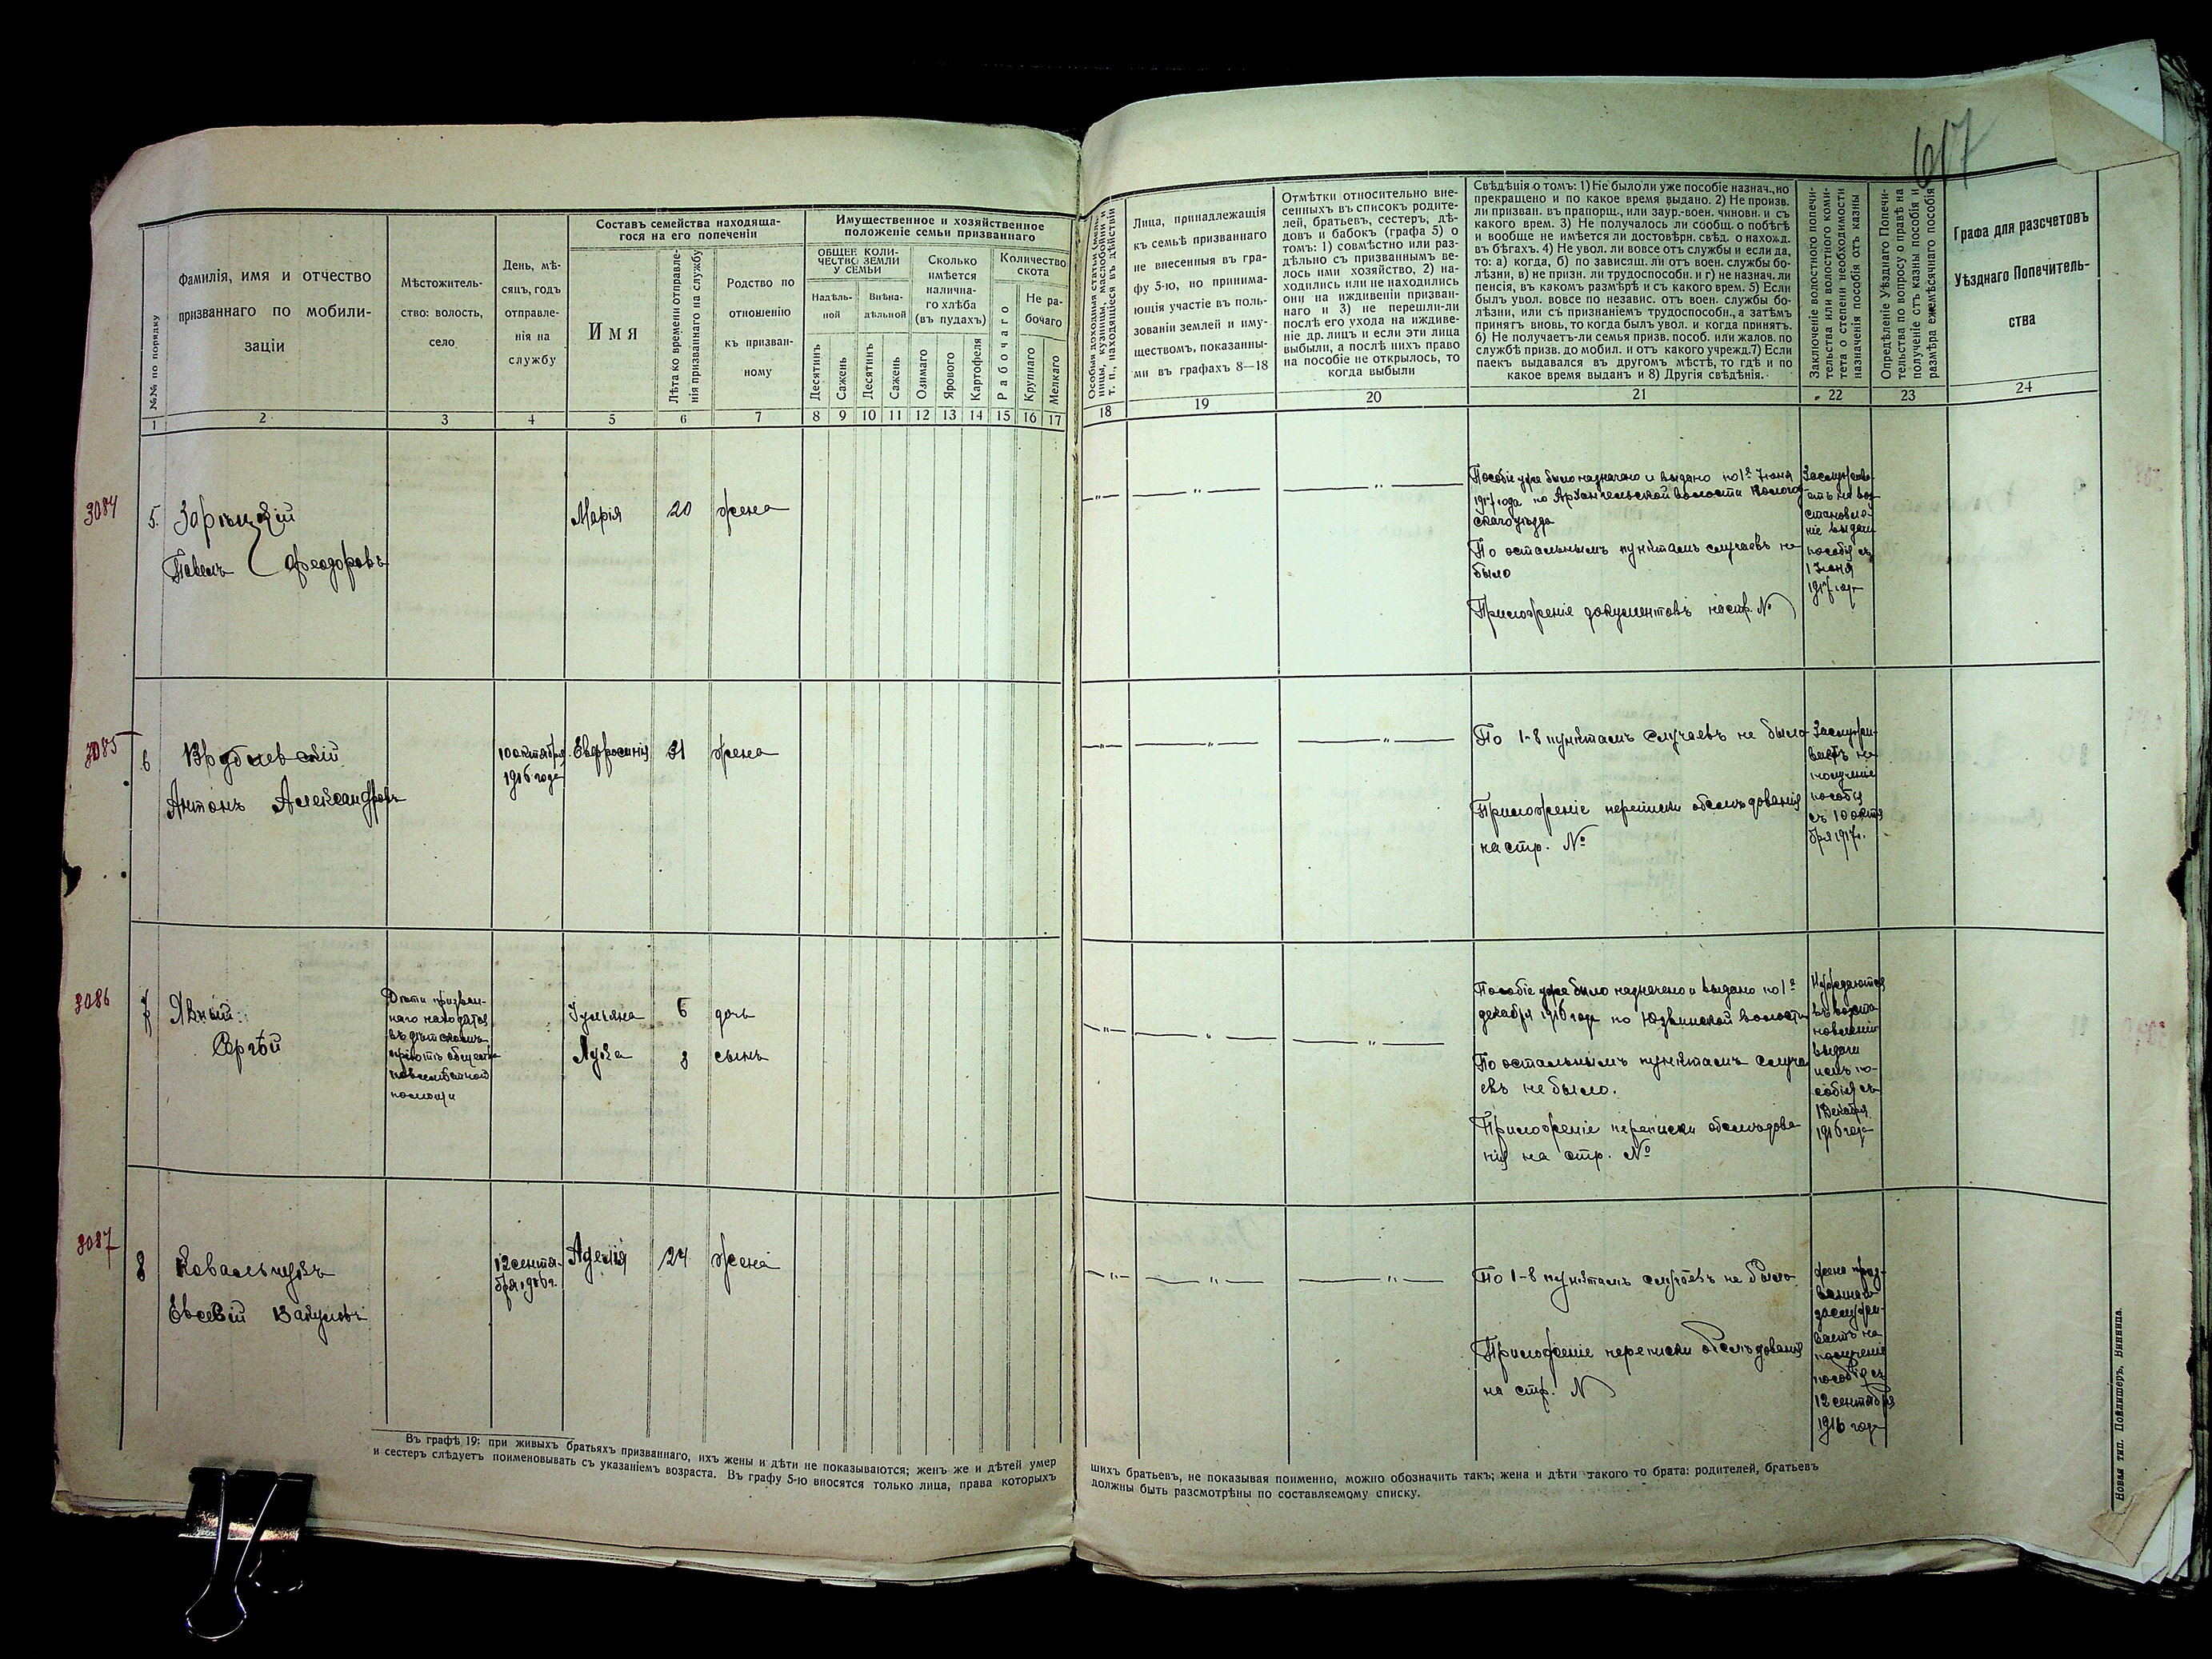 617
Составъ семейства находяща-
гося на его попеченіи
Имущественное и хозяйственное
положеніе семьи призваннаго
№№ по порядку
Фамилія, имя и отчество
призваннаго по мобили-
заціи
Мѣстожитель-
ство: волость,
село
День, мѣ-
сяцъ, годъ
отправле-
нія на
службу
Имя
Лѣта ко времени отправле-
нія призваннаго на службу
Родство по
отношенію
къ призван-
ному
ОБЩЕЕ КОЛИ-
ЧЕСТВО ЗЕМЛИ
У СЕМЬИ
Надѣль-
ной
Внѣна-
дѣльной
Десятинъ
Сажень
Десятинъ
Сажень
Сколько
имѣется
налична-
го хлѣба
(въ пудахъ)
Озимаго
Ярового
Картофеля
Количество
скота
Рабочаго
Не ра-
бочаго
Крупнаго
Мелкаго
1 2 3 4 5 6 7 8 9 10 11 12 13 14 15 16 17
3084
5. Зарѣцкій
Павелъ Феодоровъ
Марія 20 жена
3085
6 Врублевскій
Антонъ Александровъ
10 октября
1916 года
Евфросинія 31 жена
3086
7 Явный
Сергѣй
Дѣти призван-
наго находятся
въ дѣтскомъ
пріютѣ общества
помощи
Ульяна 6 дочь
Лука 8 сынъ
3087
8 Ковальчукъ
Евсевій Вакуловъ
12 сентя-
бря 1916 г.
Аделія 24 жена
Въ графѣ 19: при живыхъ братьяхъ призваннаго, ихъ жены и дѣти не показываются; женъ же и дѣтей умер
и сестеръ слѣдуетъ поименовывать съ указаніемъ возраста. Въ графу 5-ю вносятся только лица, права которыхъ
Особыя доходныя статьи (мель-
ницы, кузницы, маслобойни и
т. п., находящіеся въ дѣйствіи
Лица, принадлежащія
къ семьѣ призваннаго
не внесенныя въ гра-
фу 5-ю, но принима-
ющія участіе въ поль-
зованіи землей и иму-
ществомъ, показанны-
ми въ графахъ 8—18
Отмѣтки относительно вне-
сенныхъ въ списокъ родите-
лей, братьевъ, сестеръ, дѣ-
довъ и бабокъ (графа 5) о
томъ: 1) совмѣстно или раз-
дѣльно съ призваннымъ ве-
лось ими хозяйство, 2) на-
ходились или не находились
они на иждивеніи призван-
наго и 3) не перешли-ли
послѣ его ухода на иждиве-
ніе др. лицъ и если эти лица
выбыли, а послѣ нихъ право
на пособіе не открылось, то
когда выбыли
Свѣдѣнія о томъ: 1) Не было ли уже пособіе назнач., но
прекращено и по какое время выдано. 2) Не произв.
ли призван. въ прапорщ., или заур.-воен. чиновн. и съ
какого врем. 3) Не получалось ли сообщ. о побѣгѣ
и вообще не имѣется ли достовѣрн. свѣд. о нахожд.
въ бѣгахъ. 4) Не увол. ли вовсе отъ службы и если да,
то: а) когда, б) по зависящ. ли отъ воен. службы бо-
лѣзни, в) не призн. ли трудоспособн. и г) не назнач. ли
пенсія, въ какомъ размѣрѣ и съ какого врем. 5) Если
былъ увол. вовсе по независ. отъ воен. службы бо-
лѣзни, или съ признаніемъ трудоспособн., а затѣмъ
принятъ вновь, то когда былъ увол. и когда принятъ.
6) Не получаетъ-ли семья призв. пособ. или жалов. по
службѣ призв. до мобил. и отъ какого учрежд. 7) Если
паекъ выдавался въ другомъ мѣстѣ, то гдѣ и по
какое время выданъ и 8) Другія свѣдѣнія.
Заключеніе волостного попечи-
тельства или волостного коми-
тета о степени необходимости
назначенія пособія отъ казны
Опредѣленіе Уѣзднаго Попечи-
тельства по вопросу о правѣ на
полученіе отъ казны пособія и
размѣра ежемѣсячнаго пособія
Графа для разсчетовъ
Уѣзднаго Попечитель-
ства
18 19 20 21 22 23 24
Пособіе уже было назначено и выдано по 1е Іюня
1917 года по Архангельской волости
скаго уѣзда
По остальнымъ пунктамъ случаевъ не
было
Приложеніе документовъ на стр. №
пособія съ
1 Іюня
1917 года
По 1-8 пунктамъ случаевъ не было
Приложеніе переписки обслѣдованія
на стр. №
Заслужи-
ваетъ на
полученіе
пособія
съ 10 октя
бря 1917 г.
Пособіе уже было назначено и выдано по 1е
декабря 1916 года по Юзвинской волости
По остальнымъ пунктамъ случа
евъ не было.
Приложеніе переписки обслѣдова
нія на стр. №
Нуждаются
въ возста
новленіи
выдачи
имъ по-
собія съ
1 декабря
1916 года
По 1-8 пунктамъ случаевъ не было
Приложеніе переписки обслѣдованія
на стр. №
жена приз-
ваннаго
заслужи-
ваетъ на
полученіе
пособія съ
12 сентября
1916 года
шихъ братьевъ, не показывая поименно, можно обозначить такъ; жена и дѣти такого то брата: родителей, братьевъ
должны быть разсмотрѣны по составляемому списку.
Новая тип. Пойлишеръ, Винница.